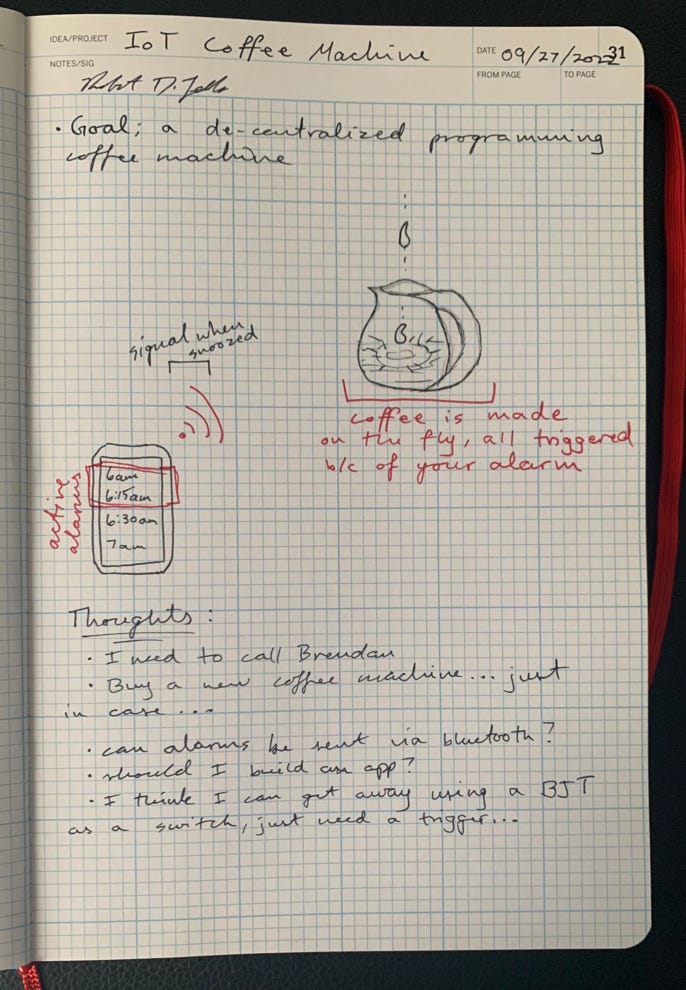 IDEA/PROJECT IoT Coffee Machine
DATE 09/27/2022
31
NOTES/SIG
FROM PAGE TO PAGE
• Goal; a de-centralized programming
coffee machine
B
B
signal when
snoozed
coffee is made
on the fly, all triggered
b/c of your alarm
active
alarms
6am
6:15am
6:30am
7am
Thoughts:
• I need to call Brendan
• Buy a new coffee machine... just
in case...
• can alarms be sent via bluetooth?
• should I build an app?
• I think I can get away using a BJT
as a switch, just need a trigger...